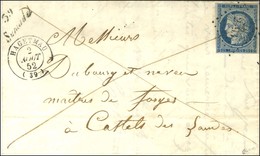 39
HAGETMAU
2
AOUT
52
(39)
Messieurs
Dubourg et neveu
maîtres de forges
à Castets des Landes